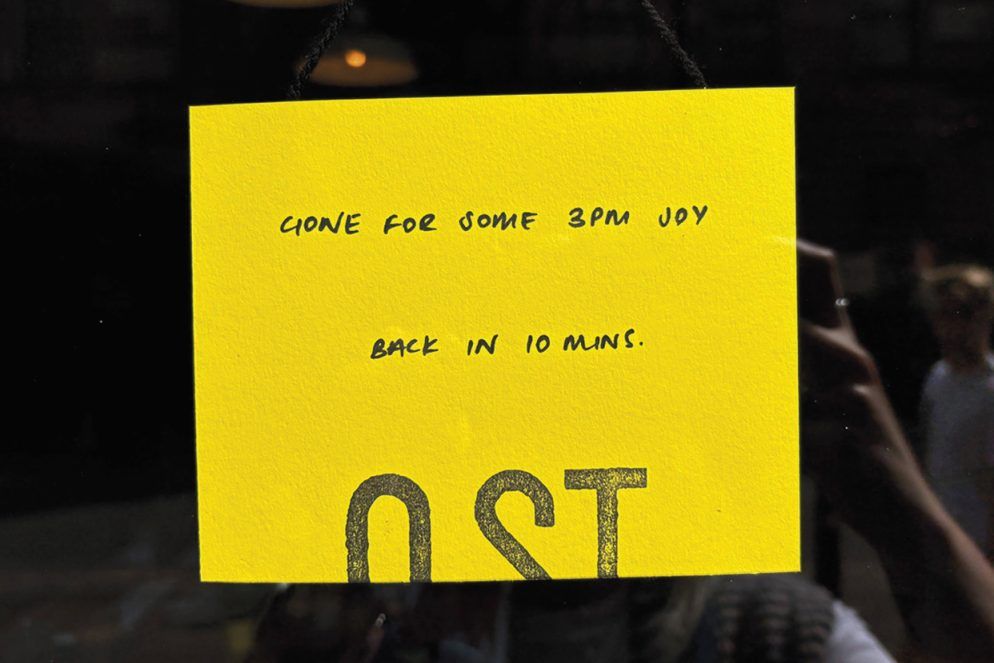 GONE FOR SOME 3PM JOY
BACK IN 10 MINS.
OST